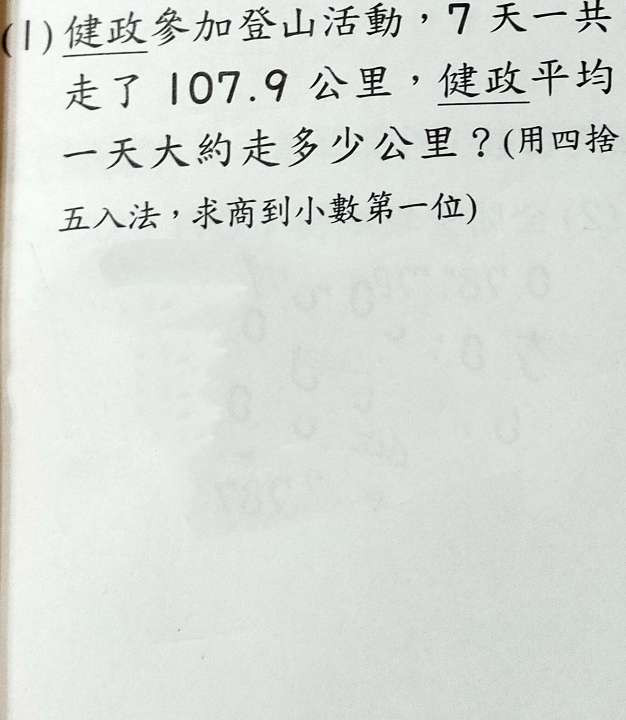 (1) 健政參加登山活動，7 天一共
走了 107.9 公里，健政平均
一天大約走多少公里？(用四捨
五入法，求商到小數第一位)